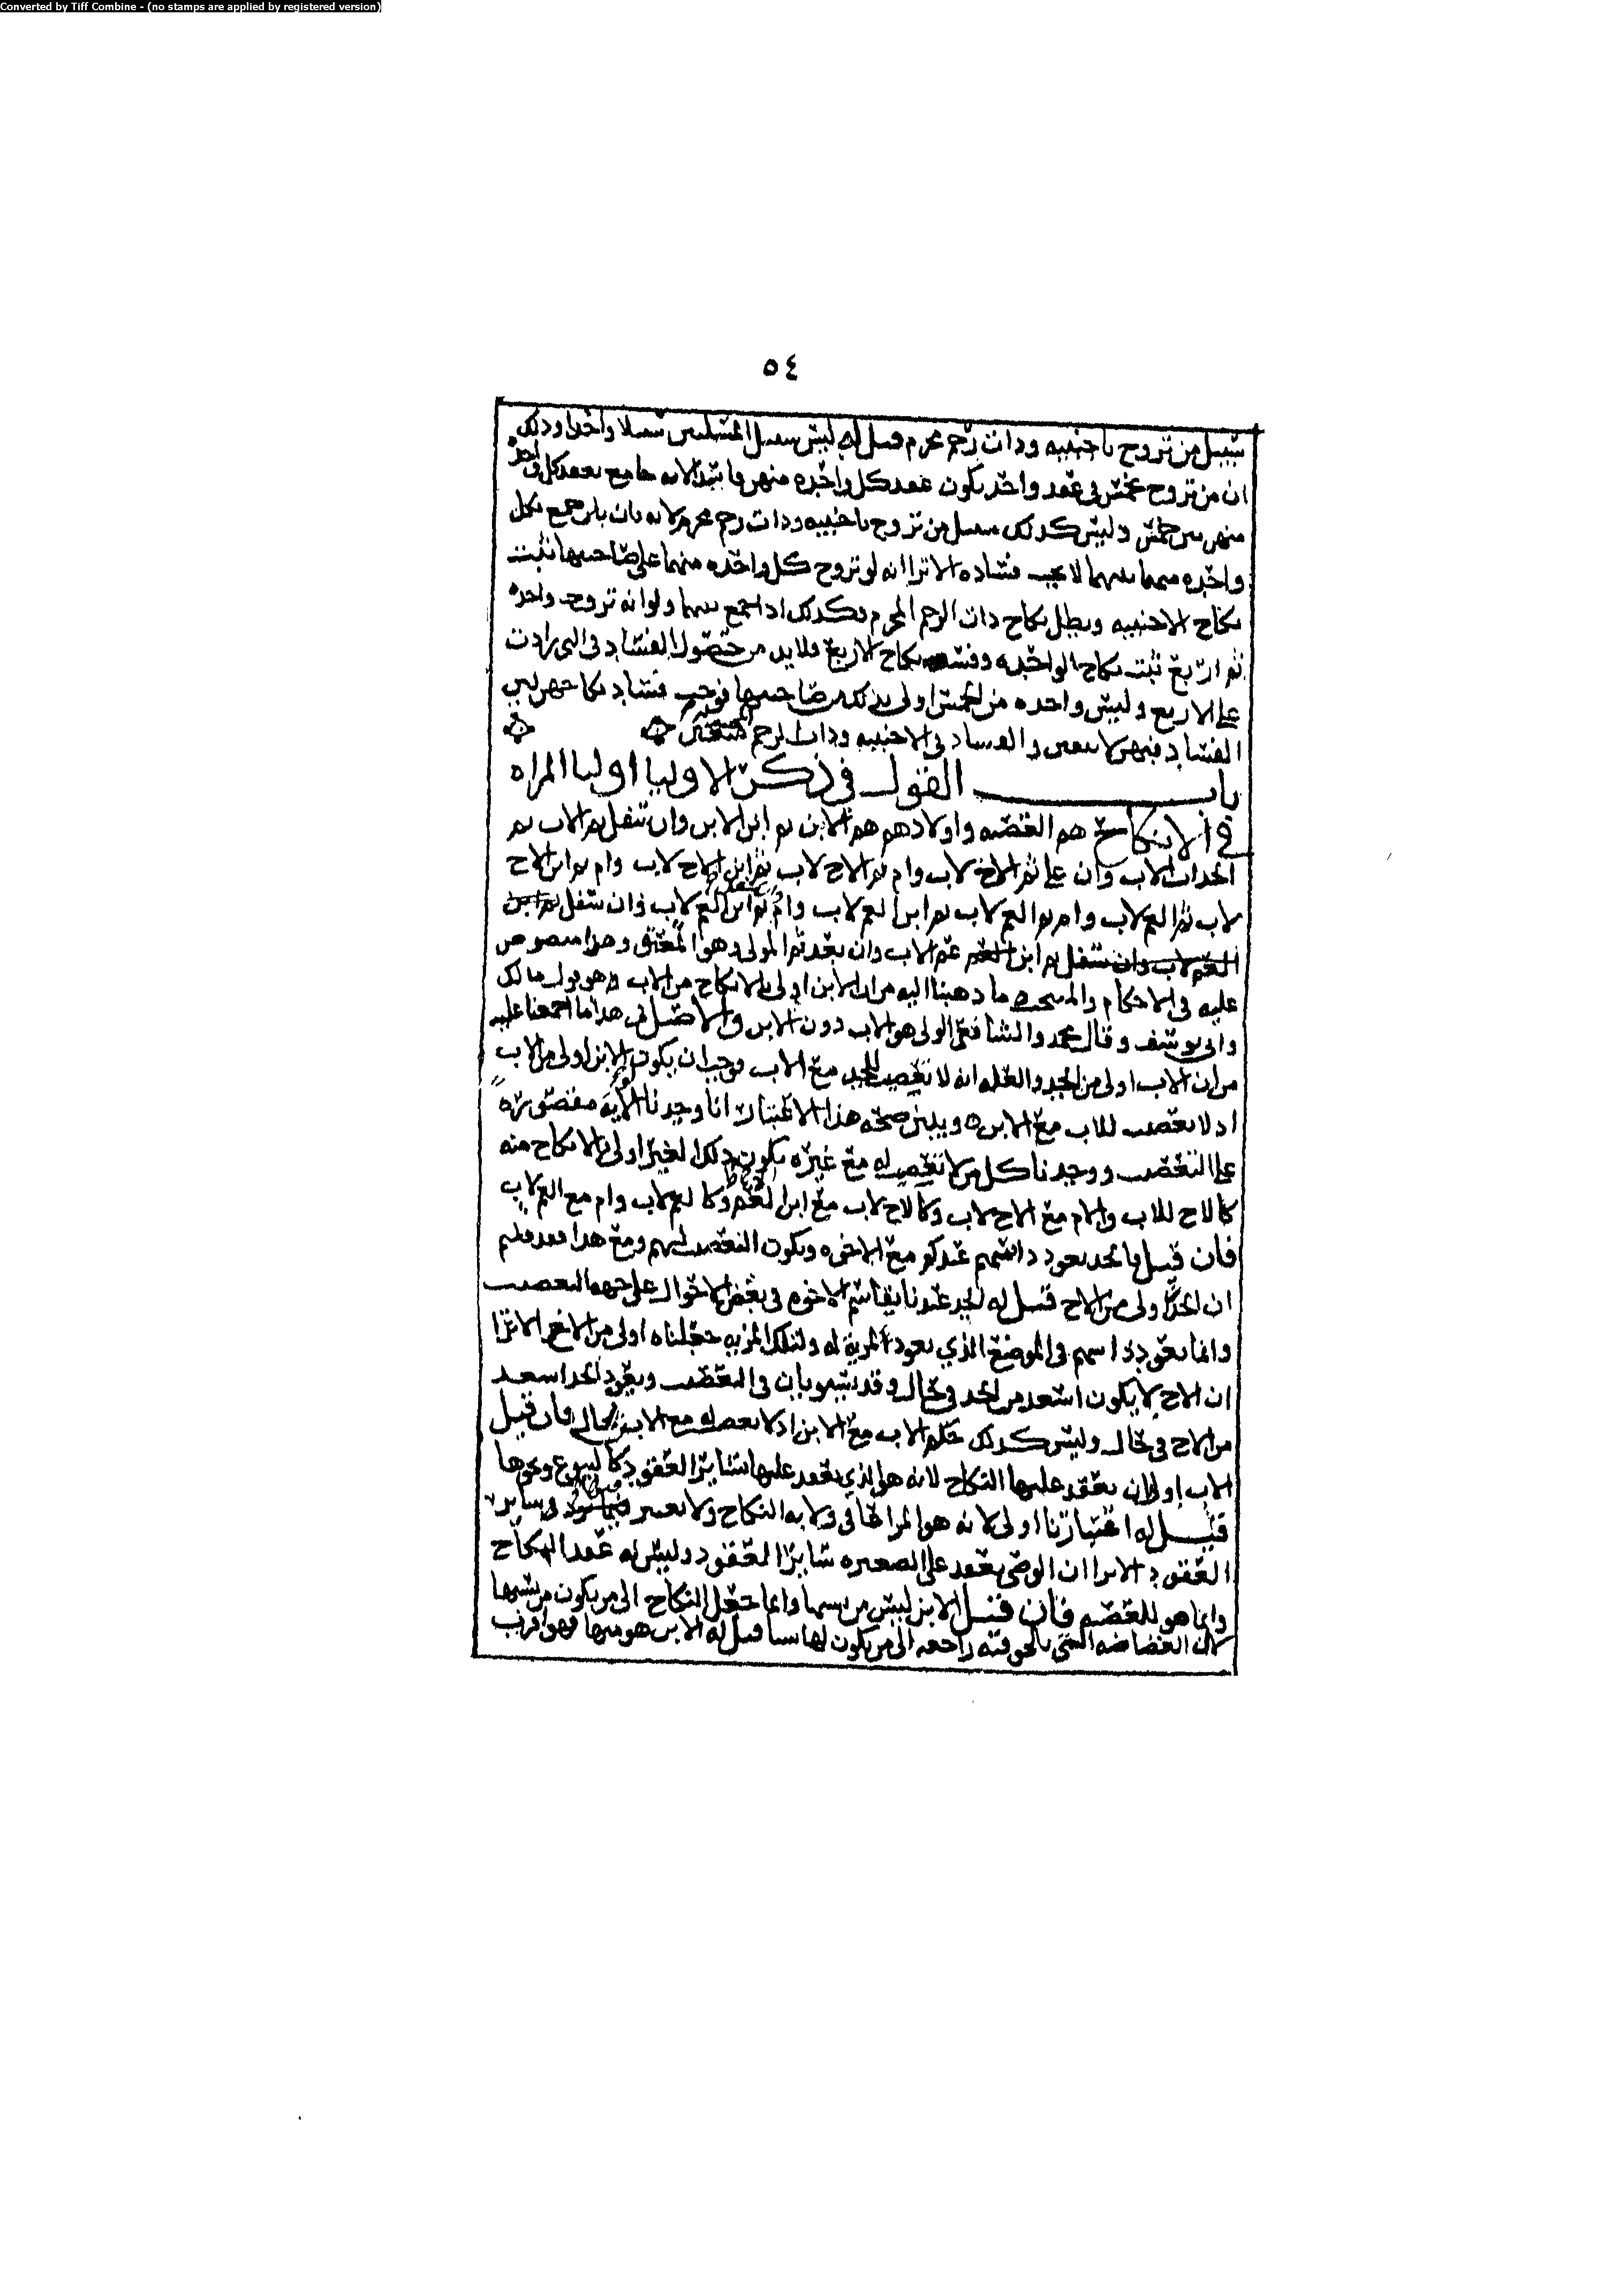 Converted by Tiff Combine - (no stamps are applied by registered version)
٥٤
سبيل من تزوج باجنبيه وذات رحم محرم قيل له ليس سبيل المسئلتين سبيلا واحدا وذلك
ان من تزوج بخمس في عقد واحد يكون عقد كل واحده منهن فاسدا لانه جامع بعقد كل واحده
منهن بين خمس وليس كذلك سبيل من تزوج باجنبيه وذات رحم محرم لانه بان يكون جمع بكل
واحده منهما بينهما لا يجب فساده الا ترا انه لو تزوج كل واحده منهما على صاحبتها ثبت
نكاح الاجنبيه وبطل نكاح ذات الرحم المحرم فكذلك اذا جمع بينهما ولو انه تزوج واحده
ثم اربع ثبت نكاح الواحده وفسد نكاح الاربع فلا بد من حصول الفساد في التي زادت
على الاربع وليس واحده من الخمس اولى بذلك من صاحبتها فوجب فساد نكاحهن
الفساد فيهن لا يتعين والفساد في الاجنبيه وذات الرحم
باب القول في ذكر الاوليا اوليا المراه
في الانكاح هم العصبه واولادهم هم الابن ثم ابن الابن وان سفل ثم الاب ثم
الجد اب الاب وان علا ثم الاخ لاب وام ثم الاخ لاب ثم ابن الاخ لاب وام ثم ابن الاخ
لاب ثم العم لاب وام ثم العم لاب ثم ابن العم لاب وام ثم ابن العم لاب وان سفل ثم ابن
العم لاب وان سفل ثم ابن العم عم الاب وان بعد ثم المولى وهو المعتق وهذا منصوص
عليه في الاحكام والمنتخب ما ذهبنا اليه من ان الابن اولى بالانكاح من الاب هو قول مالك
وابي يوسف وقال محمد والشافعي الولي هو الاب دون الابن والاصل في هذا ما اجمعنا عليه
من ان الاب اولى من الجد والعله انه لا تعصيب للجد مع الاب فوجب ان يكون الابن اولى من الاب
اذ لا تعصيب للاب مع الابن ويبين صحه هذا الاعتبار انا وجدنا الولايه مقصوره
على التعصيب ووجدنا كل من لا تعصيب له مع غيره يكون ذلك الغير اولى بالانكاح منه
كالاخ للاب والام مع الاخ لاب وكالاخ لاب مع ابن العم وكالعم لاب وام مع العم لاب
فان قيل فالجد يعود داسهم عندكم مع الاخوه ويكون التعصيب لهم ومع هذا فقد قلتم
ان الجد اولى من الاخ قيل له الجد عندنا يقاسم الاخوه في بعض الاحوال على جهه التعصيب
وانما يعود ذا سهم في الموضع الذي يعود المزيه له ولتلك المزيه جعلناه اولى من الاخ الا ترا
ان الاخ لا يكون اسعد من الجد في حال وقد يستويان في التعصيب ويعود الجد اسعد
من الاخ في حال وليس كذلك حكم الاب مع الابن اذ لا تعصيب له مع الابن بحال فان قيل
الاب اولى ان يعقد عليها النكاح لانه هو الذي يعقد عليها سائر العقود كالبيوع ونحوها
قيل له اعتبارنا اولى لانه هو المراعا في ولايه النكاح ولا يعتبر وساير
العقود الا ترا ان الوصي يعقد على الصغيره سائر العقود وليس له عقد النكاح
وانما هو للعصبه فان قيل الابن ليس من نسبها وانما جعل النكاح الى من يكون من نسبها
لان الغضاضه التي تلحق فيه راجعه الى من يكون لها نسبا قيل له الابن هو منها فهو اقرب